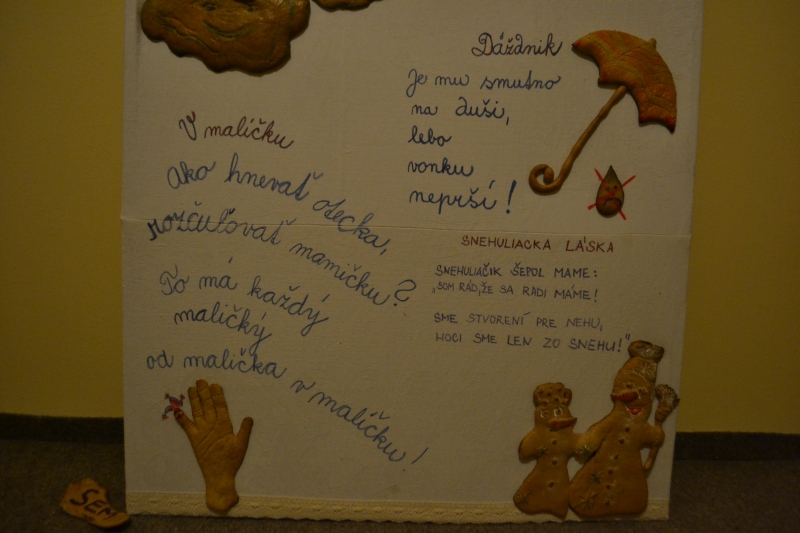 Dáždnik
Je mu smutno
na duši,
lebo
vonku
neprší!
V malíčku
Ako hnevať otecka,
rozčuľovať mamičku?
To má každý
maličký
od malička v malíčku!
SNEHULIACKA LÁSKA
SNEHULIAČIK ŠEPOL MAME:
„SOM RÁD, ŽE SA RADI MÁME!
SME STVORENÍ PRE NEHU,
HOCI SME LEN ZO SNEHU!"
SEM